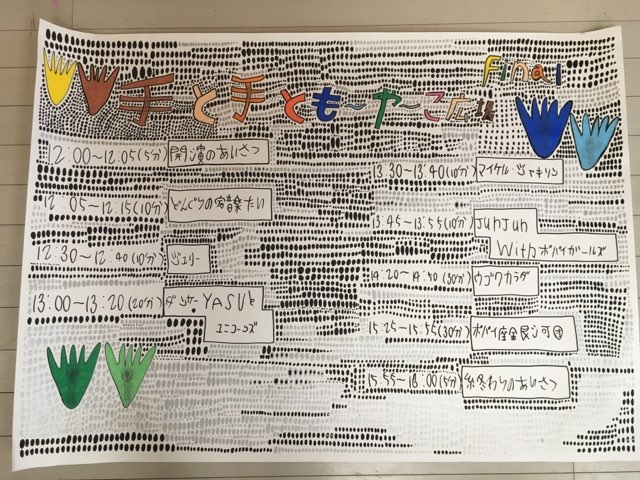 Final
手と手とも〜や〜こ広場
12:00〜12:05(5分) 開演のあいさつ
12:05〜12:15(10分) どんぐりの音楽たい
12:30〜12:40(10分) ジュリー
13:00〜13:20(20分) ダンサーYASUと
ユニコーンズ
13:30〜13:40(10分) マイケル・ジャキソン
13:45〜13:55(10分) JunJun
Withポパイガールズ
14:20〜14:50(30分) ウゴクカラダ
15:25〜15:55(30分) ポパイ座全員
15:55〜16:00(5分) 終わりのあいさつ